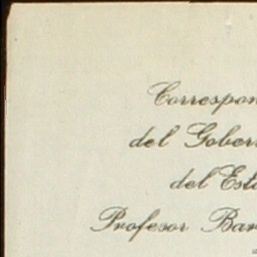 Correspon
del Gober
del Esta
Profesor Bar